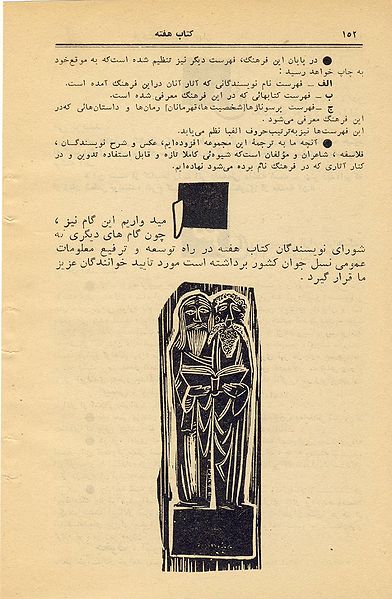 ۱۵۲
کتاب هفته
● در پایان این فرهنگ، فهرست دیگر نیز تنظیم شده است‌که به موقع‌خود
به چاپ خواهد رسید :
الف ــ فهرست نام نویسندگانی که آثار آنان دراین فرهنگ آمده است.
ب ــ فهرست کتابهائی که در این فرهنگ معرفی شده است.
ج ــ فهرست پرسوناژها[شخصیت‌ها،قهرمانان] رمان‌ها و داستان‌هائی که‌در
این فرهنگ معرفی می‌شود .
این فهرست‌ها نیزبه‌ترتیب‌حروف الفبا نظم می‌یابد.
● آنچه ما به ترجمهٔ این مجموعه افزوده‌ایم، عکس و شرح نویسندگان ،
فلاسفه ، شاعران و مؤلفان است‌که شیوه‌ئی کاملا تازه و قابل استفاده تدوین و در
کنار آثاری که در فرهنگ نام برده می‌شود نهاده‌ایم.
مید واریم این گام نیز ،
چون گام های دیگری که
شورای نویسندگان کتاب هفته در راه توسعه و ترفیع معلومات
عمومی نسل جوان کشور برداشته است مورد تایید خوانندگان عزیز
ما قرار گیرد .